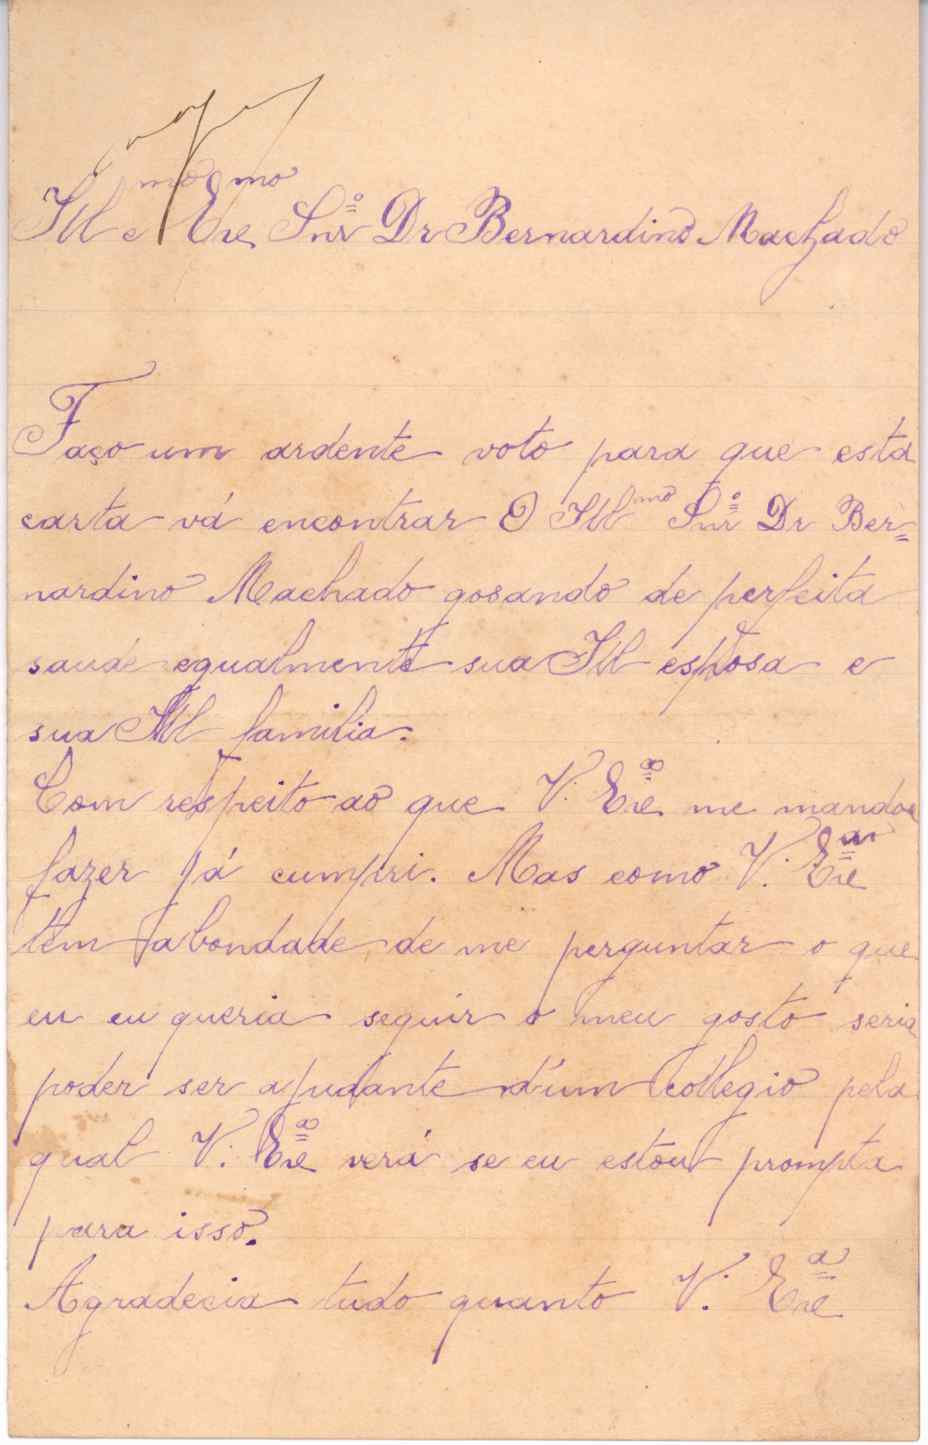 Ill^mo e Exc^mo Snr.º Dr Bernardino Machado
Faço um ardente voto para que esta
carta vá encontrar O Ill^mo Snr.º Dr Ber=
nardino Machado gosando de perfeita
saude egualmente sua Ill esposa e
sua Ill familia.
Com respeito ao que V. Exc^a me mandou
fazer já cumpri. Mas como V. Exc^a
tem a bondade de me perguntar o que
eu eu queria seguir o meu gosto seria
poder ser ajudante d'um collegio pela
qual V. Exc^a verá se eu estou prompta
para isso.
Agradecia tudo quanto V. Exc^a